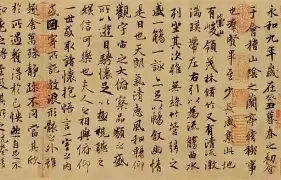 永和九年歲在癸丑暮春之初會
于會稽山陰之蘭亭脩稧事
也群賢畢至少長咸集此地
有崇山峻領茂林脩竹又有清流激
湍暎帶左右引以為流觴曲水
列坐其次雖無絲竹管弦之
盛一觴一詠亦足以暢敘幽情
是日也天朗氣清惠風和暢仰
觀宇宙之大俯察品類之盛
所以遊目騁懷足以極視聽之
娛信可樂也夫人之相與俯仰
一世或取諸懷抱悟言一室之內
或因寄所託放浪形骸之外雖
趣舍萬殊靜躁不同當其欣
於所遇蹔得於己怏然自足不